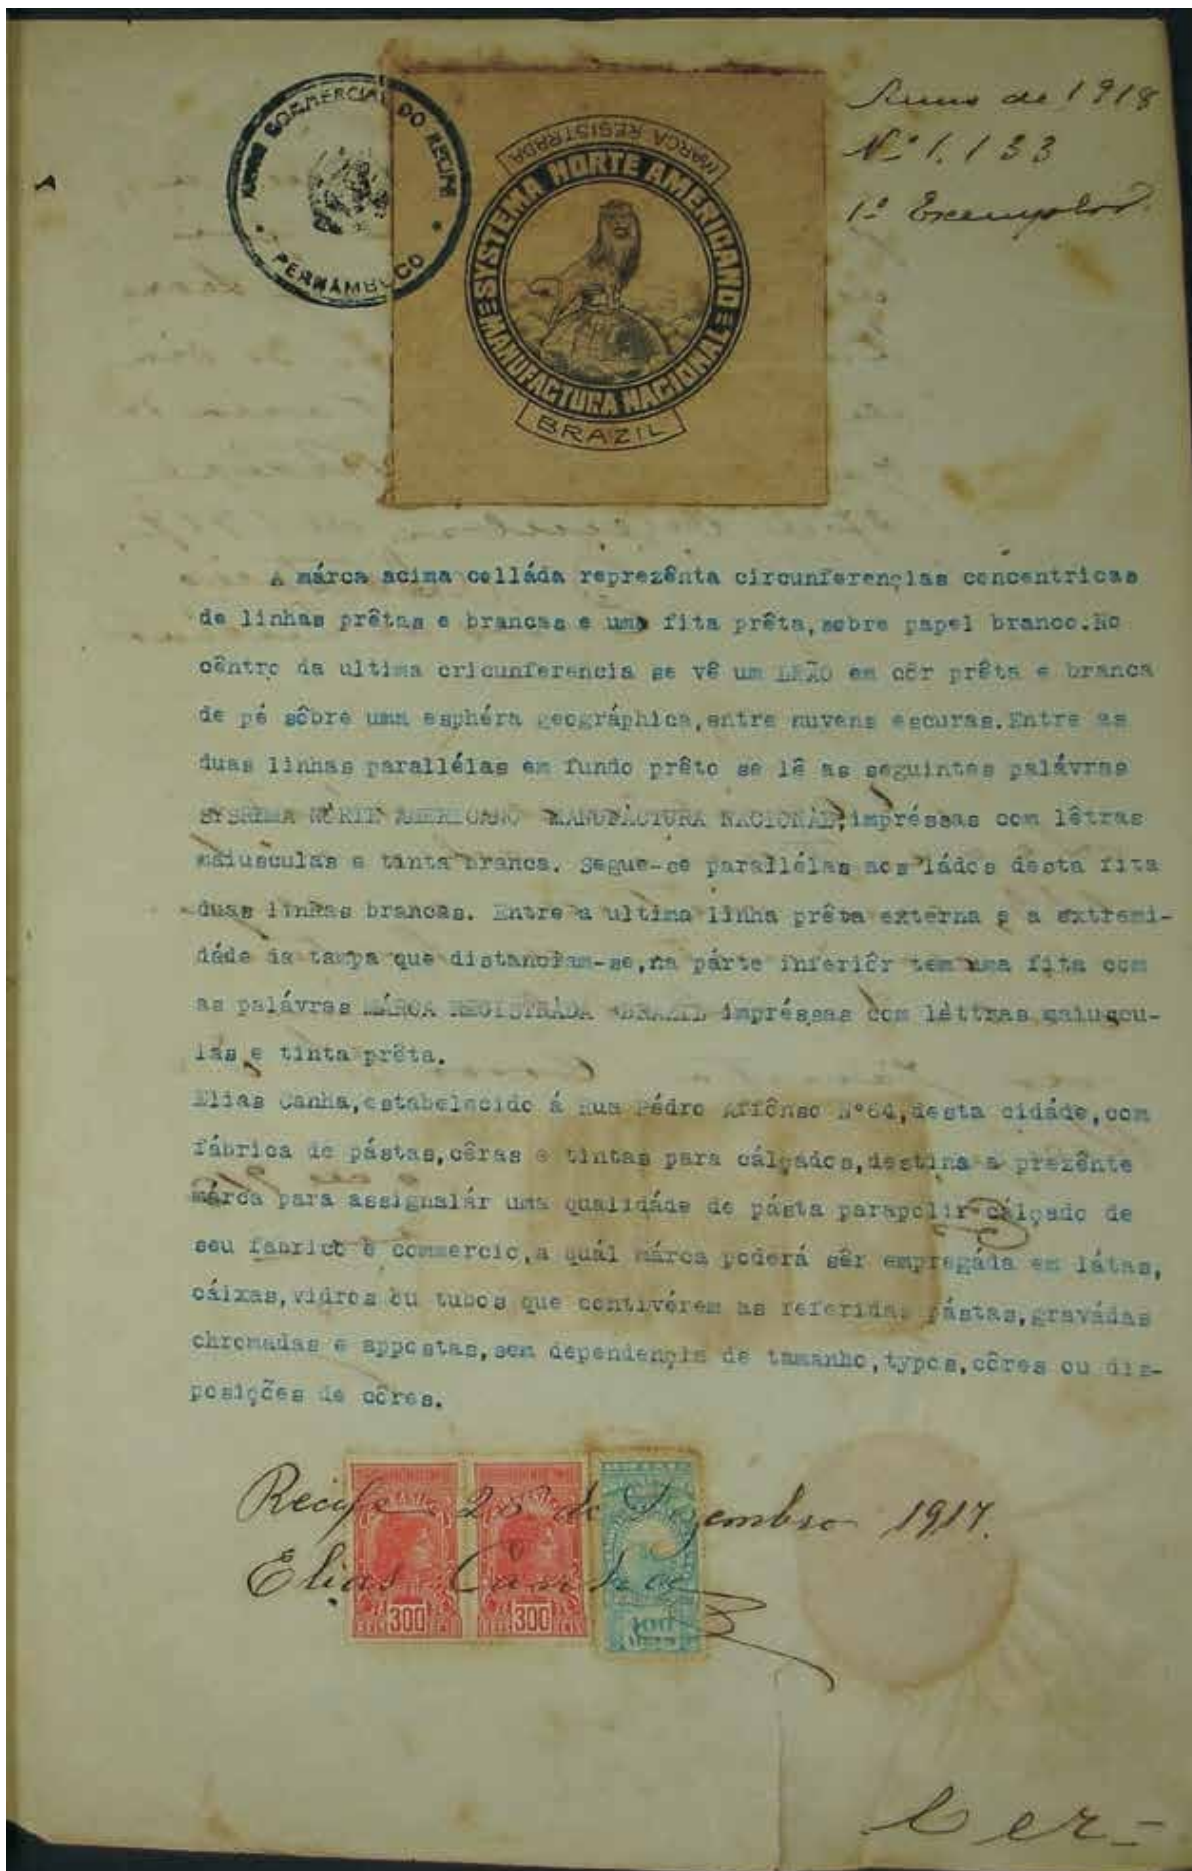 Anno de 1918
Nº 1.133
1º Exemplar
COMMERCIAL DO RECIFE
PERNAMBUCO
MARCA REGISTRADA
SYSTEMA NORTE AMERICANO
MANUFACTURA NACIONAL
BRAZIL
A márca acima colláda reprezênta circunferençias concentricas
de linhas prêtas e brancas e uma fita prêta,sobre papel branco.No
cêntro da ultima cricunferencia se vê um LEÃO em côr prêta e branca
de pé sôbre uma esphéra geográphica,entre nuvens escuras.Entre as
duas linhas parallélas em fundo prêto se lê as seguintes palávras
NÓRTE AMERICANO MANUFÁCTURA NACIONAL,impréssas com lêtras
maiusculas e tinta branca. Segue-se parallélas aos ládos desta fita
duas linhas brancas. Entre a ultima linha prêta externa e a extremi-
dáde da tampa que distanciam-se,na párte inferiôr tem uma fita com
as palávras MÁRCA REGISTRÁDA -BRAZIL impréssas com léttras maiuscu-
las e tinta prêta.
Elias Canha,estabelecido á Rua Pédro Affônso Nº64,desta cidáde,com
fábrica de pástas,cêras e tintas para cálçados,destina a prezênte
márca para assignalár uma qualidáde de pásta parapolir cálçado de
seu fabrico e commercio,a quál márca poderá sêr empregáda em látas,
cáixas,vidros ou tubos que contivérem as referidas pástas,gravádas
chromadas e appostas,sem dependençia de tamanho,typos,côres ou dis-
posições de côres.
Recife 28 de Dezembro 1917.
Elias Canha
300 300
Cer=